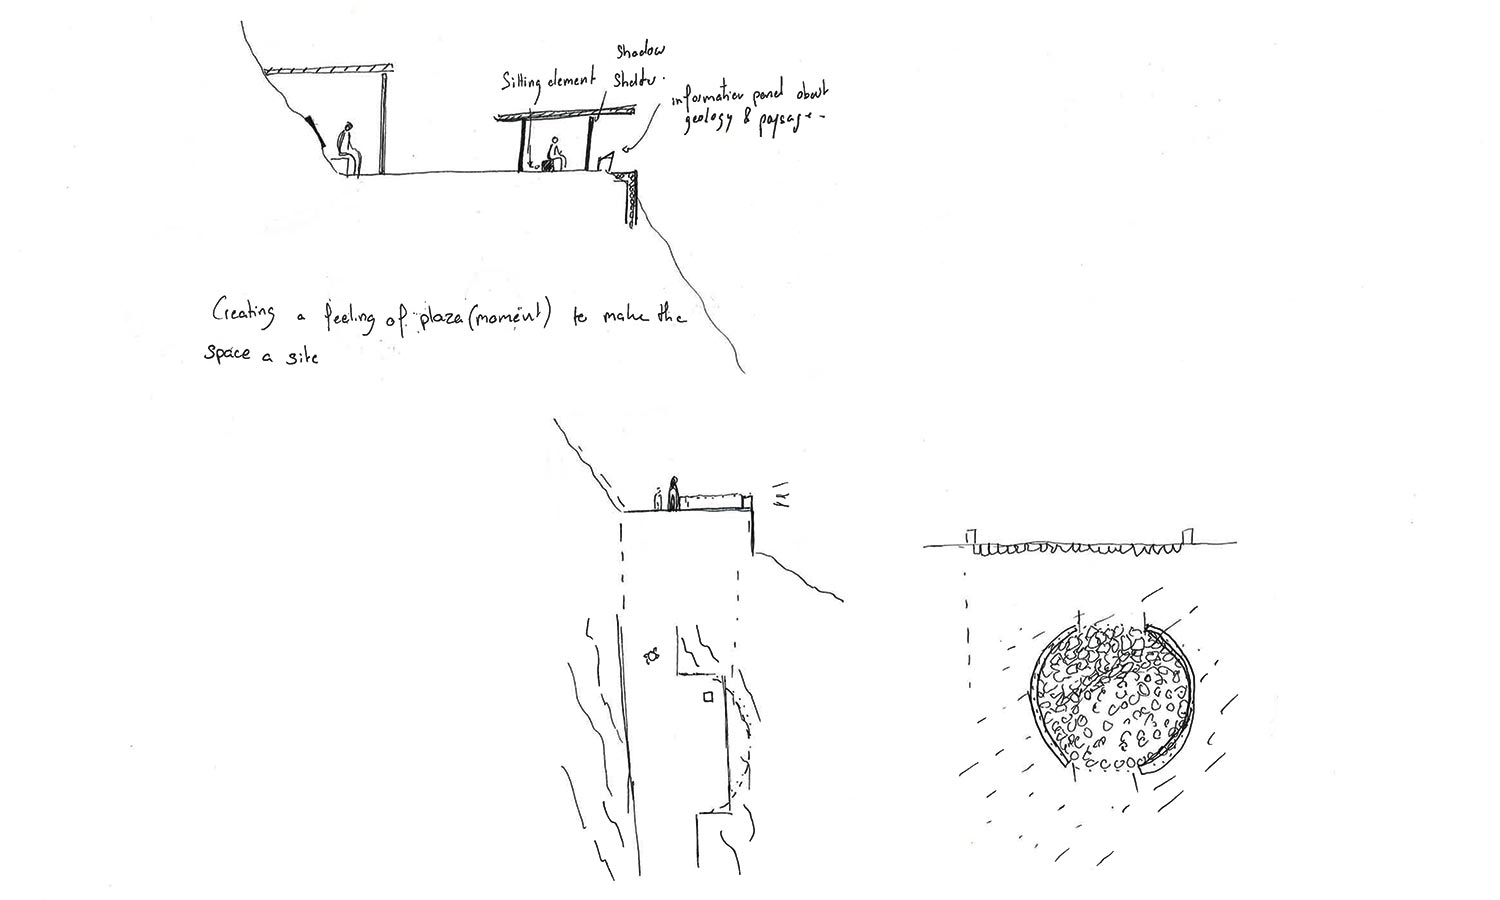 Sitting element
Shadow
Shelter.
information panel about
geology & paysage.
Creating a feeling of plaza (moment) to make the
space a site